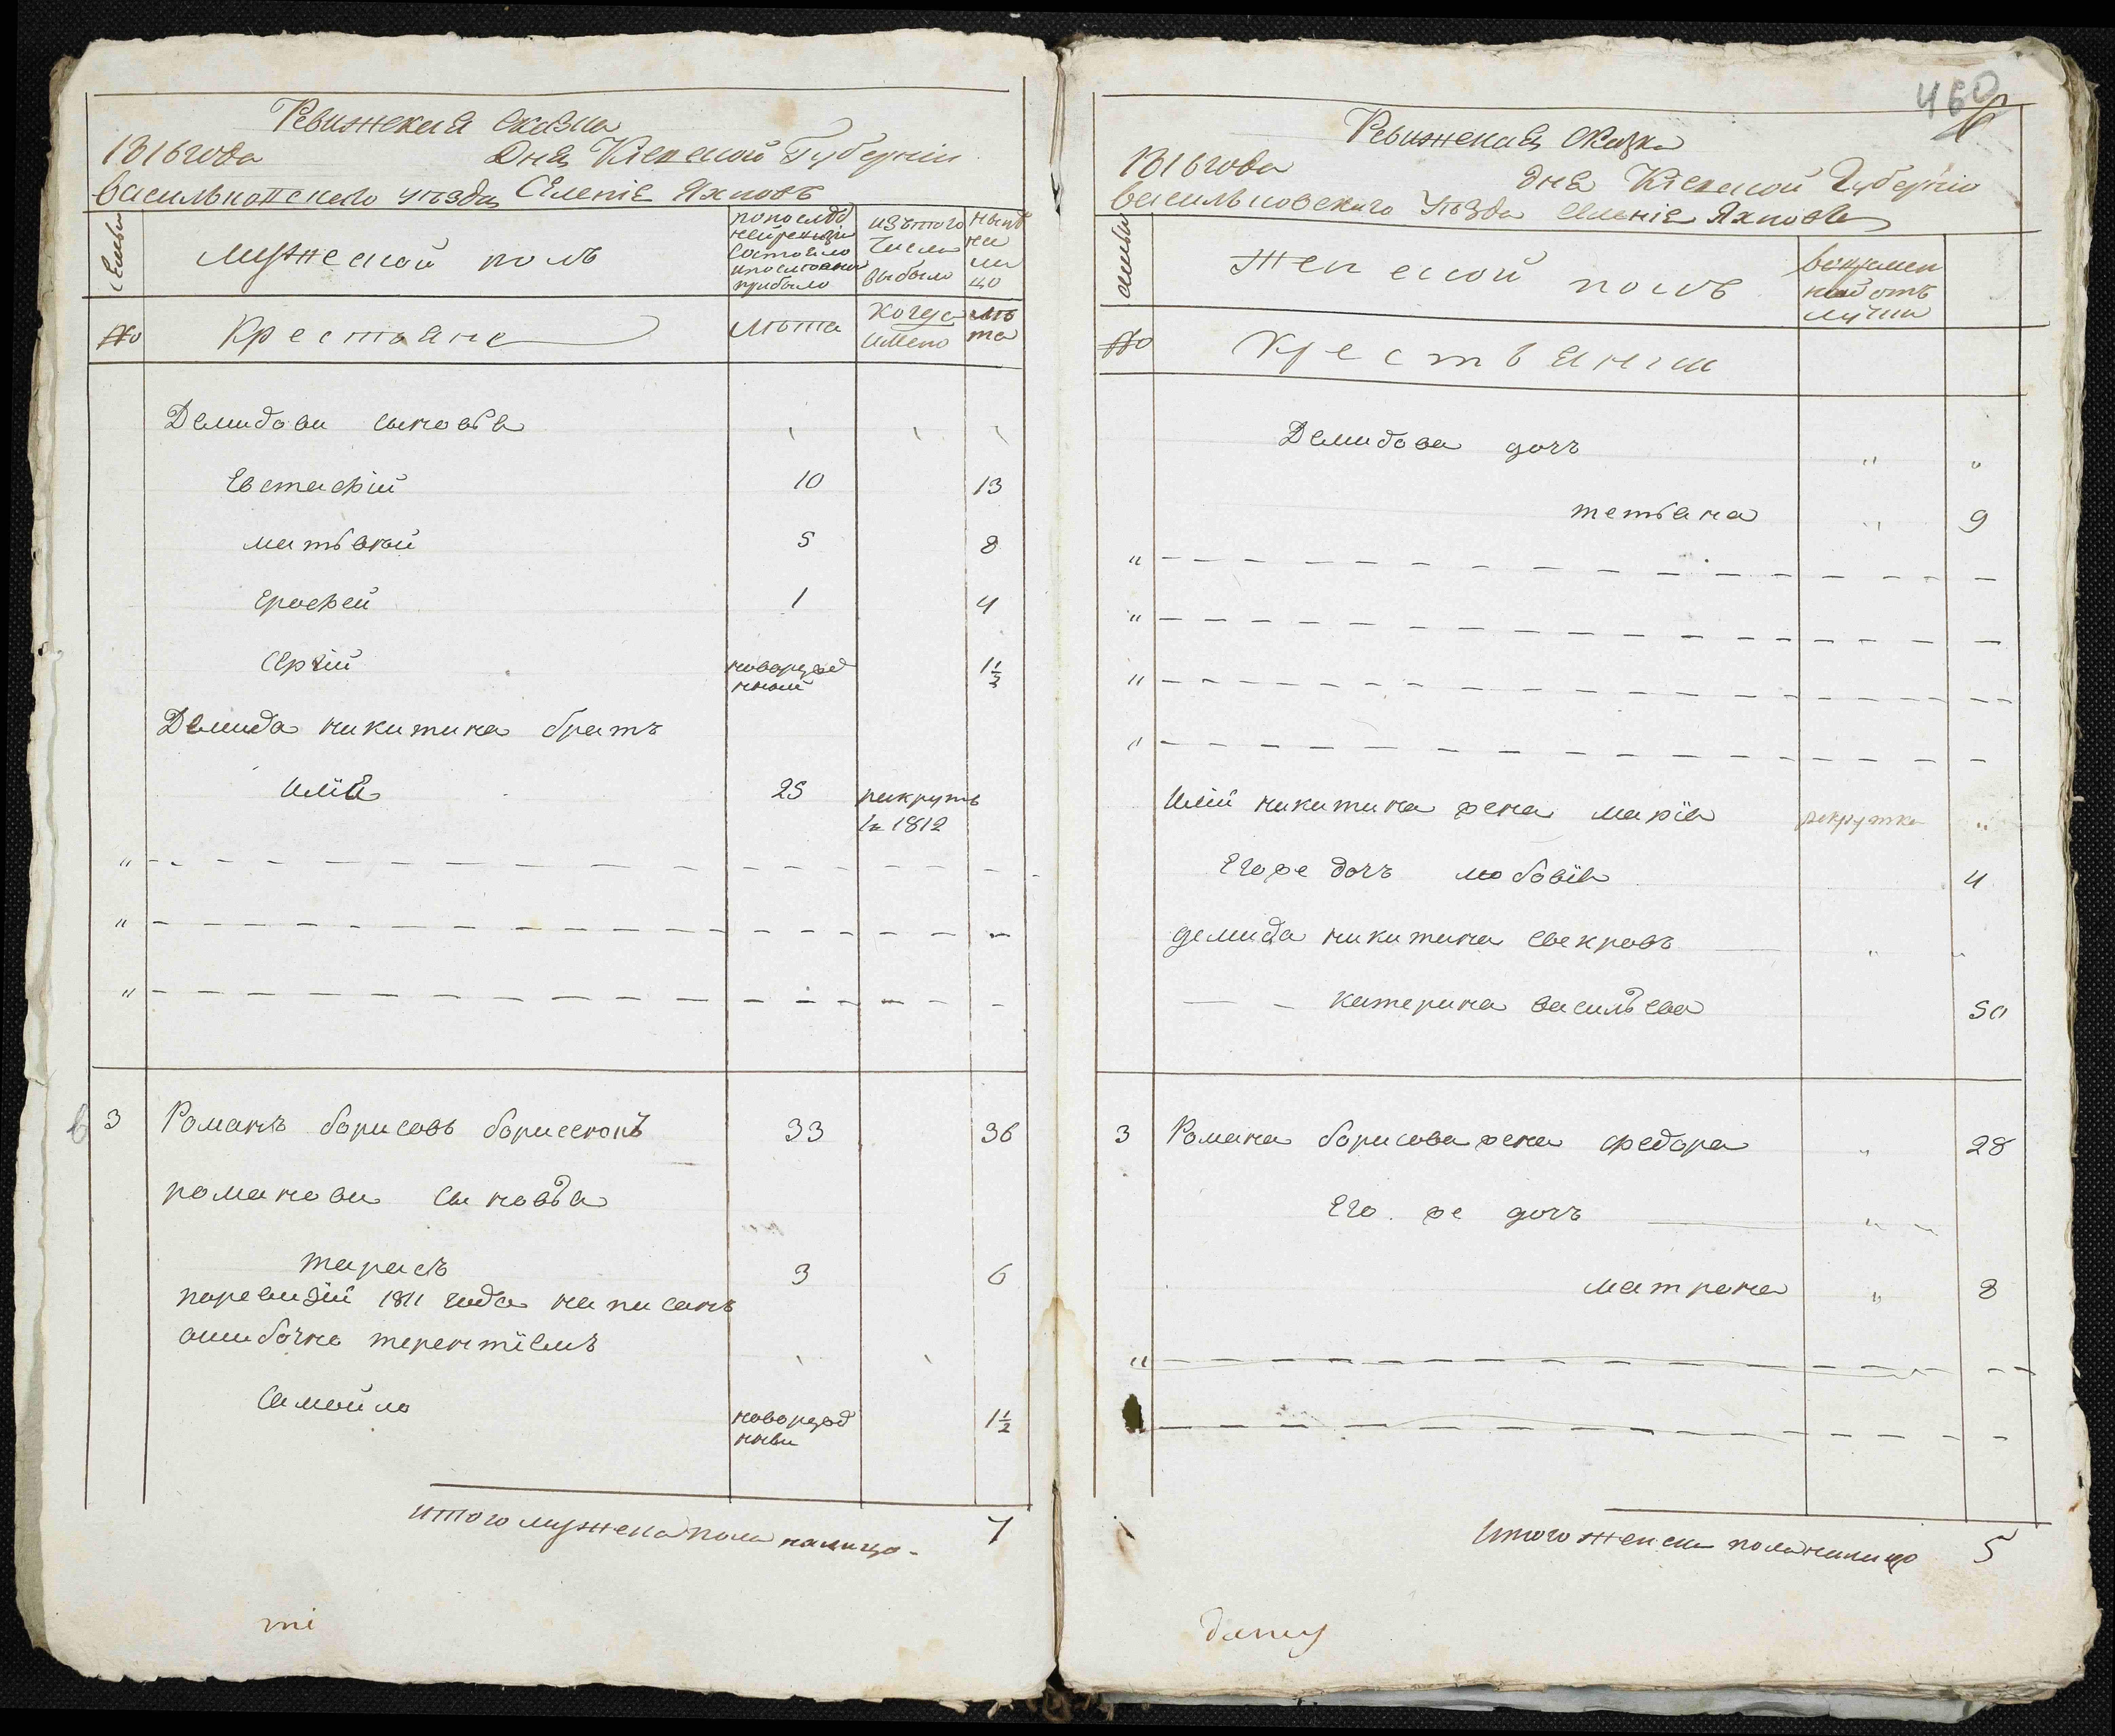 Ревижская сказка
1816 года Дня Кіевской Губерніи
васильковского уезда Селеніе Яхновъ
Семьи
мужеской полъ
по послѣд
ней ревизіи
состояло
и после того
прибыло
изъ того
числа
выбыло
нынѣ
на
ли
цо
№
Крестьяне
лѣта
когда
имено
лѣ
та
Демидови сыновья
Евстафій 10 13
матвѣй 5 8
Ерофей 1 4
Сергій новорожд
нный 1½
Демида никитина братъ
илія 25 рекрутъ
1812
3 Романъ борисовъ 33 36
романови сыновья
тарасъ 3 6
по ревизіи 1811 года написанъ
ошибочно терентіемъ
Самойло новорожд
нны 1½
итого мужеска пола налицо 7
ті
460
Ревижская сказка
1816 года дня Кіевской Губерніи
васильковского уезда Селеніе Яхновъ
Семьи
женской полъ
во времен
ной от
лучки
№
Крестьянки
Демидова дочъ
тетьяна 9
Иліи никитина жена марія рекрутка
Его же дочъ любовія 4
демида никитина свекровъ
катерина васильева 50
3 Романа борисова жена федора 28
Его же дочъ
матрона 8
Итого женска пола налицо 5